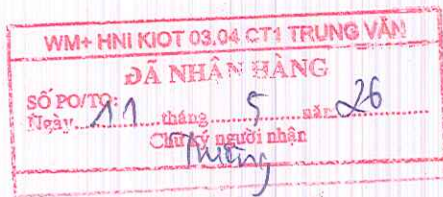 WM+ HNI KIOT 03,04 CT1 TRUNG VĂN
ĐÃ NHẬN HÀNG
SỐ PO/TO:
Ngày 11 tháng 5 năm 26
Chữ ký người nhận